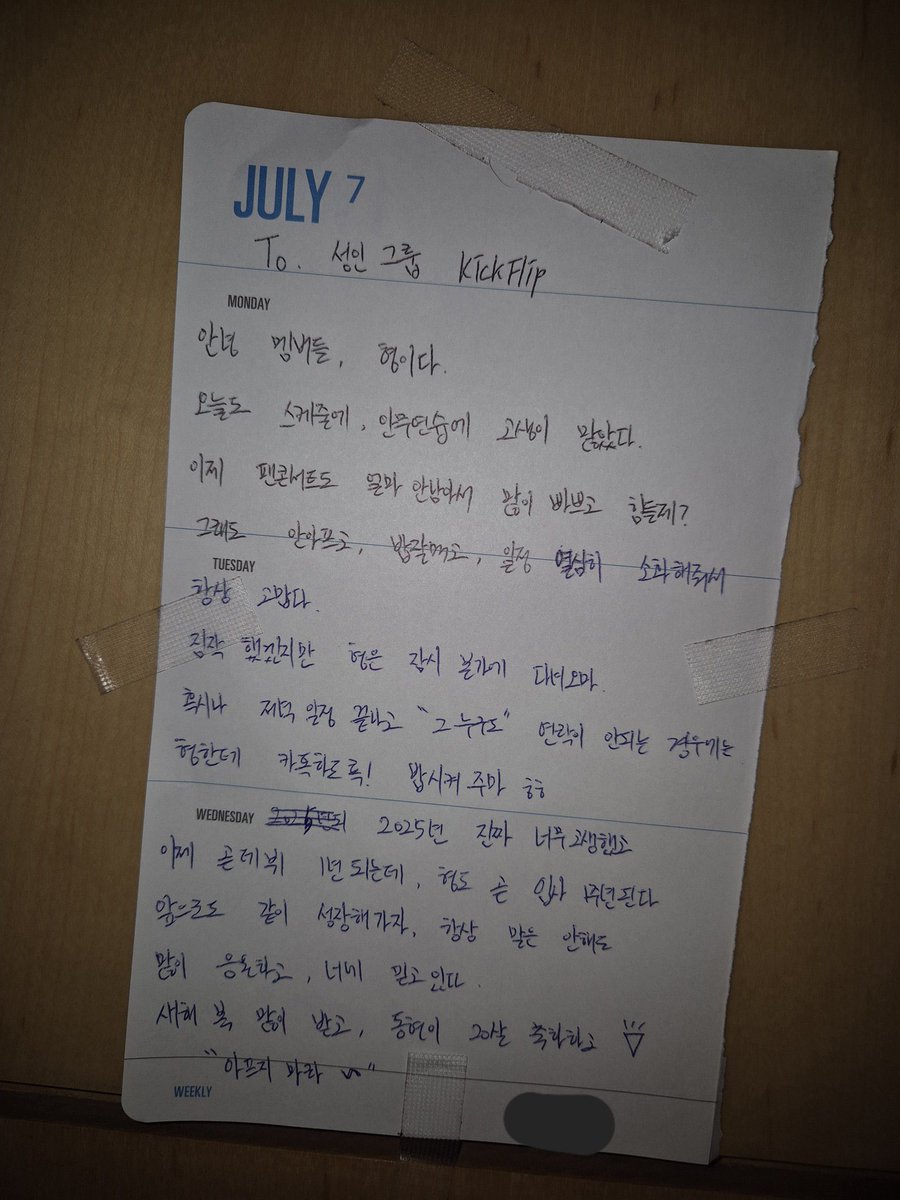 JULY 7
To. 성인 그룹 KickFlip
MONDAY
안녕 멤버들, 형이다.
오늘도 스케줄에, 안무연습에 고생이 많았다.
이제 팬콘서트도 얼마 안남아서 많이 바쁘고 힘들제?
그래도 안아프고, 밥잘먹고, 일정 열심히 소화해줘서
TUESDAY
항상 고맙다.
짐작 했겠지만 형은 잠시 본가에 다녀오마.
혹시나 저녁 일정 끝나고 "그 누구도" 연락이 안되는 경우에는
형한테 카톡하도록! 밥시켜 주마 ㅎㅎ
WEDNESDAY 2025년 진짜 너무 고생했고
이제 곧 데뷔 1년 되는데, 형도 곧 입사 1주년된다
앞으로도 같이 성장해가자, 항상 말은 안해도
많이 응원하고, 너네 믿고 있다.
새해 복 많이 받고, 동현이 20살 축하하고
"아프지 마라 ~"
WEEKLY